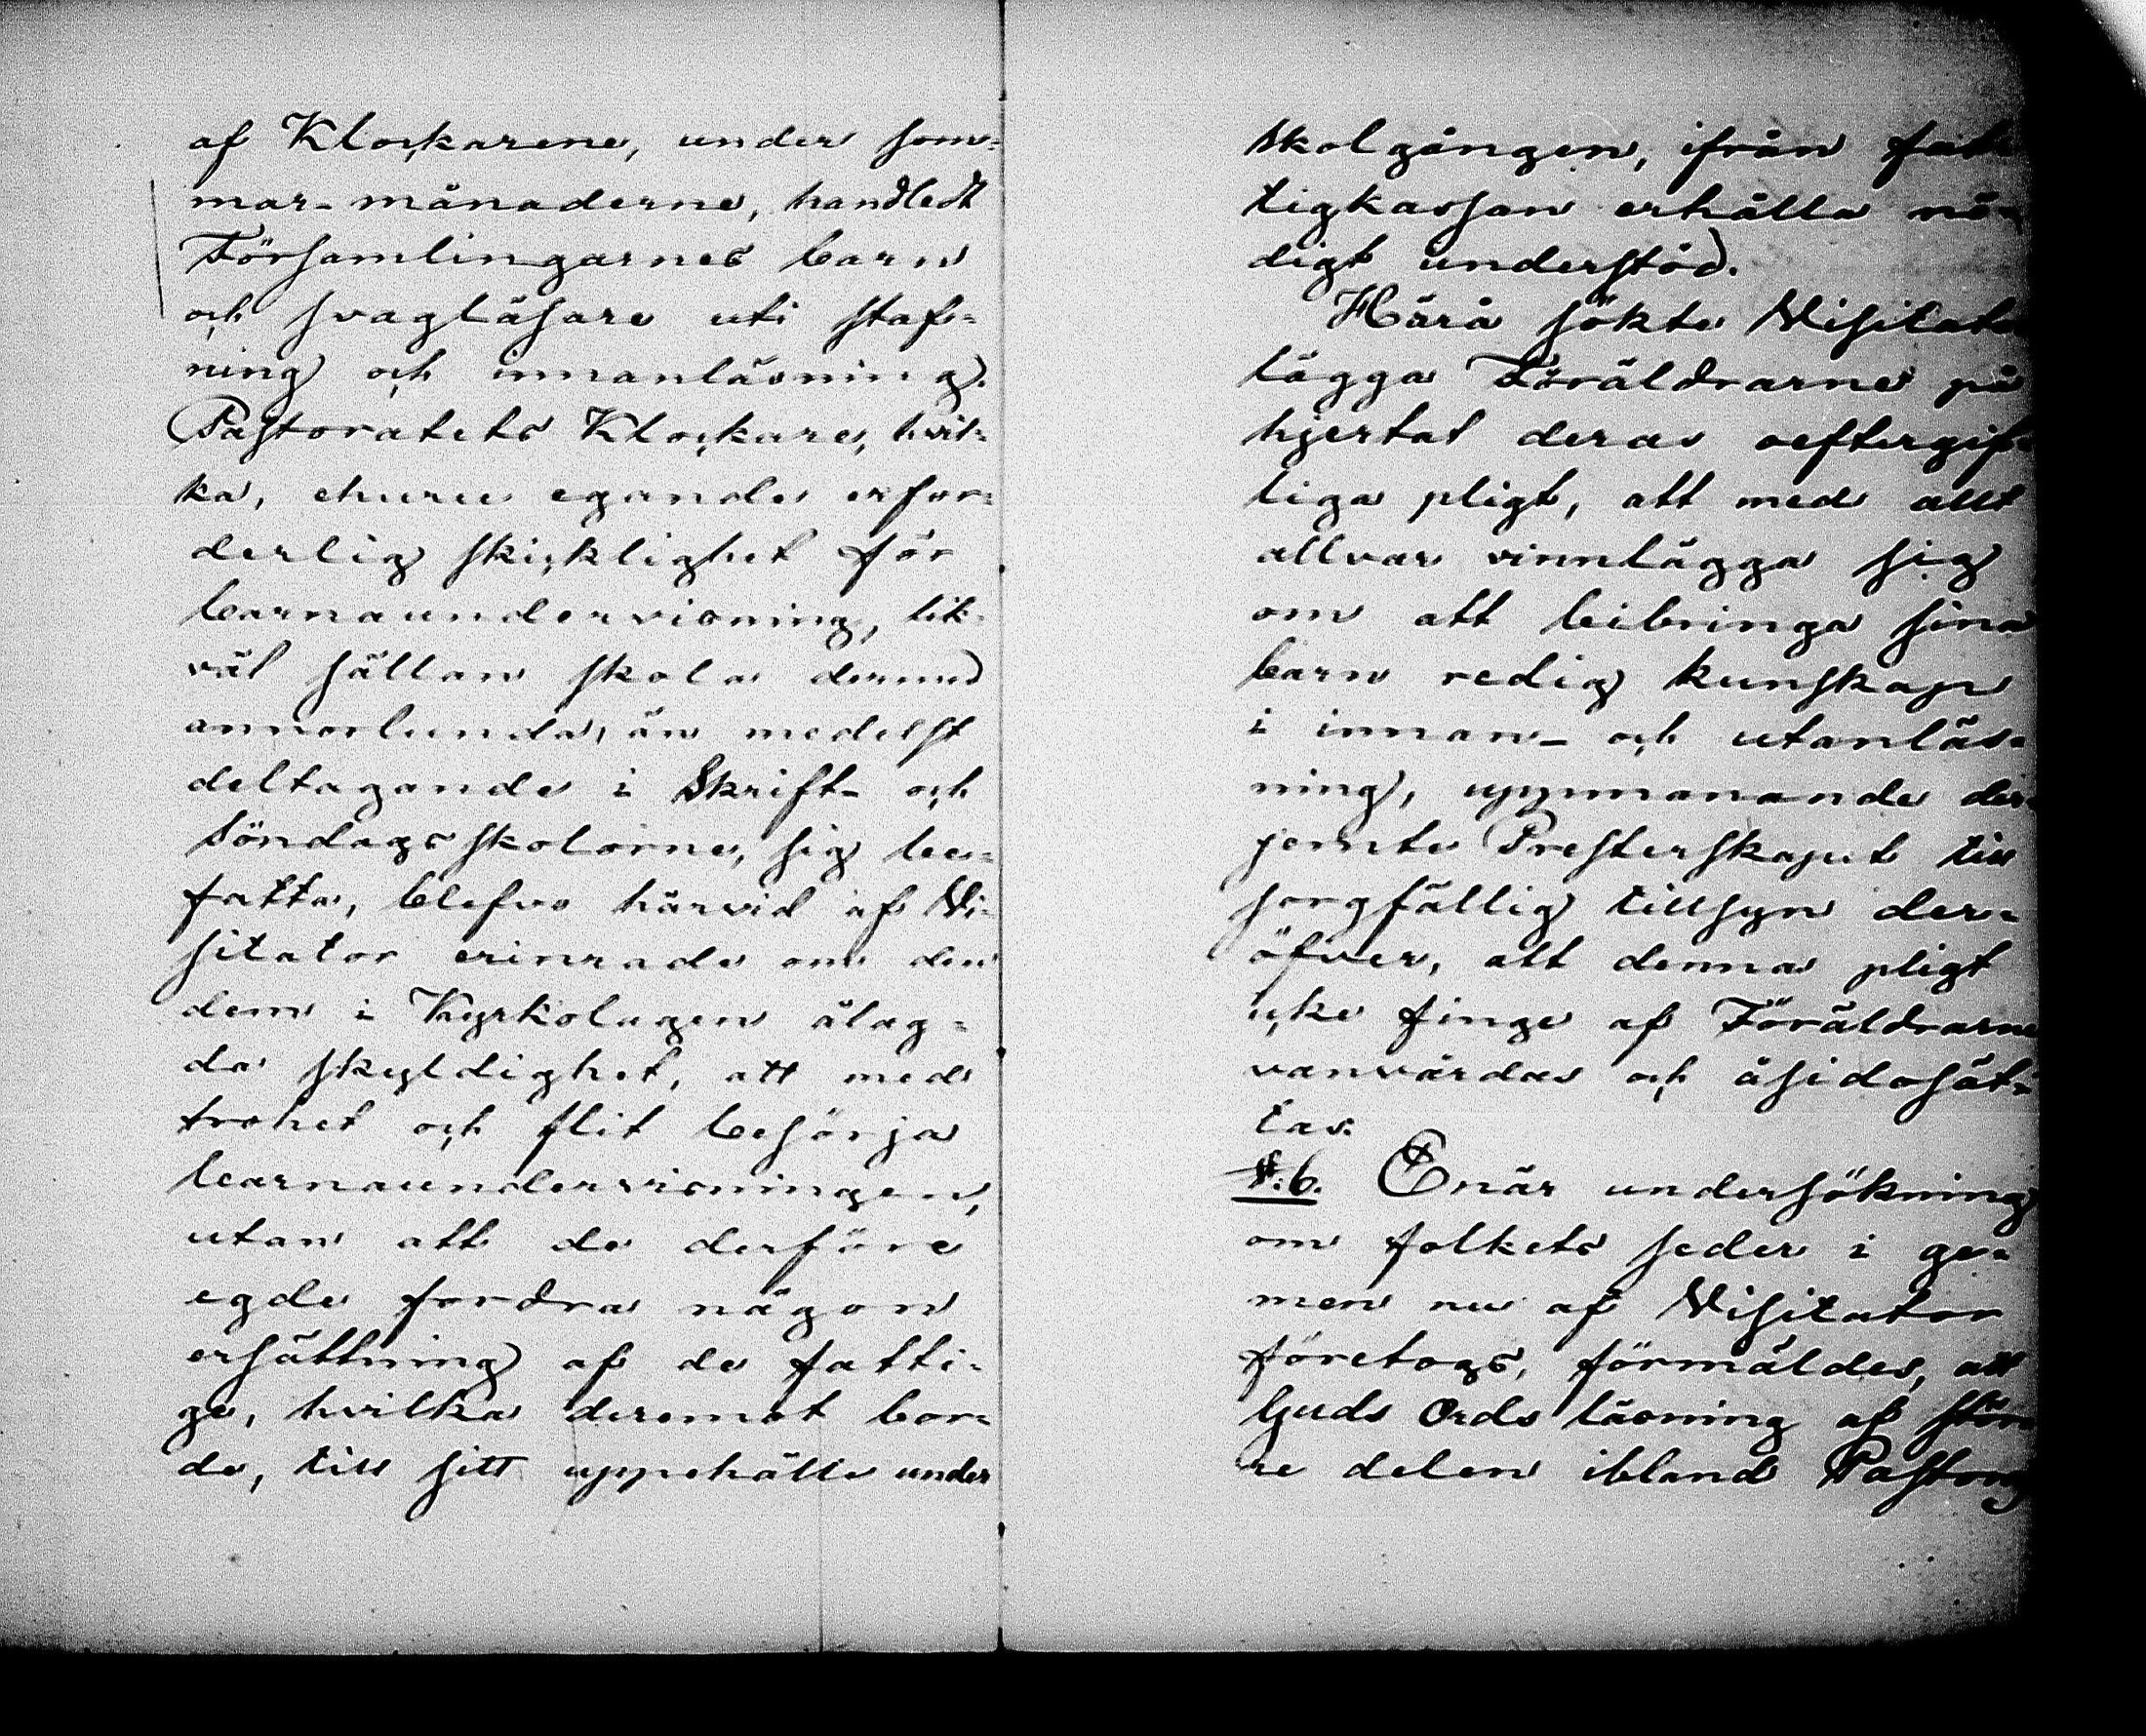 af Klockarene, under som=
mar-månaderne, handledt
Församlingarnes barn
och svagläsare uti staf=
ning och innanläsning.
Pastoratets Klockare, hvil=
ka, ehuru egande erfor=
derlig skicklighet för
barnaundervisning, lik=
väl sällan skola dermed
annorlunda, än medelst
deltagande i Skrift- och
Söndagsskolorne, sig be=
fatta, blefvo härvid af Vi=
sitator erinrade om den
dem i Kyrkolagen ålag=
da skyldighet, att med
trohet och flit besörja
barnaundervisningen,
utan att de derföre
egde fordra någon
ersättning af de fatti=
ge, hvilka deremot bor=
de, till sitt uppehälle under
skolgången, ifrån fat=
tigkassan erhålla nö=
digt understöd.
Härå sökte Visitator
lägga Föräldrarne på
hjertat deras oeftergif=
liga pligt, att med allt
allvar vinnlägga sig
om att bibringa sina
barn redig kunskap
i innan- och utanläs=
ning, uppmanande der=
jemte Presterskapet till
sorgfällig tillsyn der=
öfver, att denna pligt
icke finge af Föräldrarne
vanvårdas och åsidosät=
tas.
§. 6. Enär undersökning
om folkets seder i ge=
men nu af Visitator
företogs, förmäldes, att
Guds Ords läsning af stör=
re delen ibland Pastorat